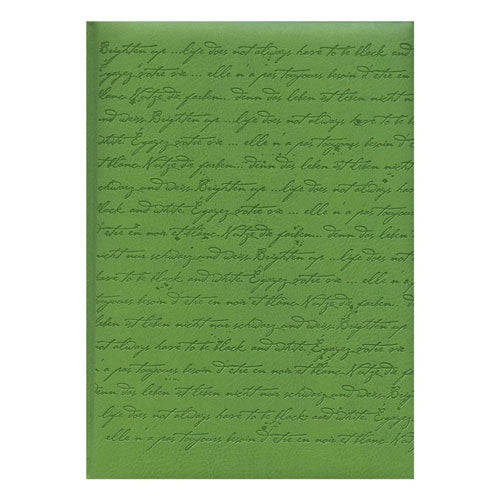 Brighten up ...life does not always have to be black and
Egayez votre vie ... elle n a pas toujours besoin d etre en
blanc. Nutze die farben... denn das leben ist leben nicht n
und weiss. Brighten up ...life does not always have to b
elle n a pas toujours besoin d etre en noir et
blanc. Nutze die farben... denn das leben ist leben nicht
schwarz und weiss. Brighten up ...life does not always have t
black and white. Egayez votre vie ... elle n a pas toujours
etre en noir et blanc. Nutze die farben... denn das leben ist
nicht nur schwarz und weiss. Brighten up ...life does not alwa
have to be black and white. Egayez votre vie ... elle n
toujours besoin d etre en noir et blanc. Nutze die farben... de
leben ist leben nicht nur schwarz und weiss. Brighten up
ot always have to be black and white. Egayez votre vie ...
n a pas toujours besoin d etre en noir et blanc. Nutze die fa
enn das leben ist leben nicht nur schwarz und weiss. Brighten
life does not always have to be black and white. Egaye
elle n a pas toujours besoin d etre en noir et blanc. Nut